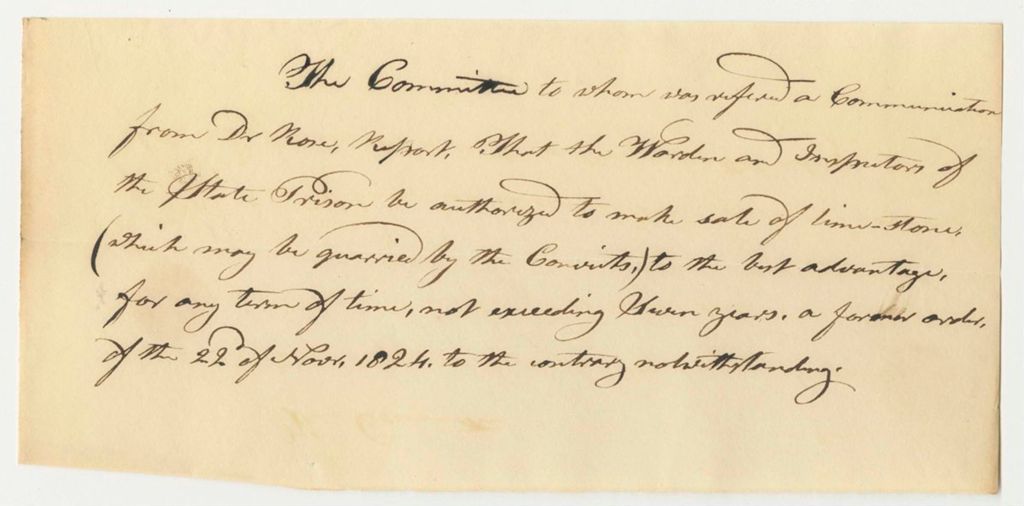 The Committee to whom was refered a Communication
from Dr Rose, Report, That the Warden and Inspectors of
the State Prison be authorized to make sale of lime-stone,
(which may be quarried by the Convicts,) to the best advantage,
for any term of time, not exceeding Seven years. a former order,
of the 22d of Novr. 1824. to the contrary notwithstanding.